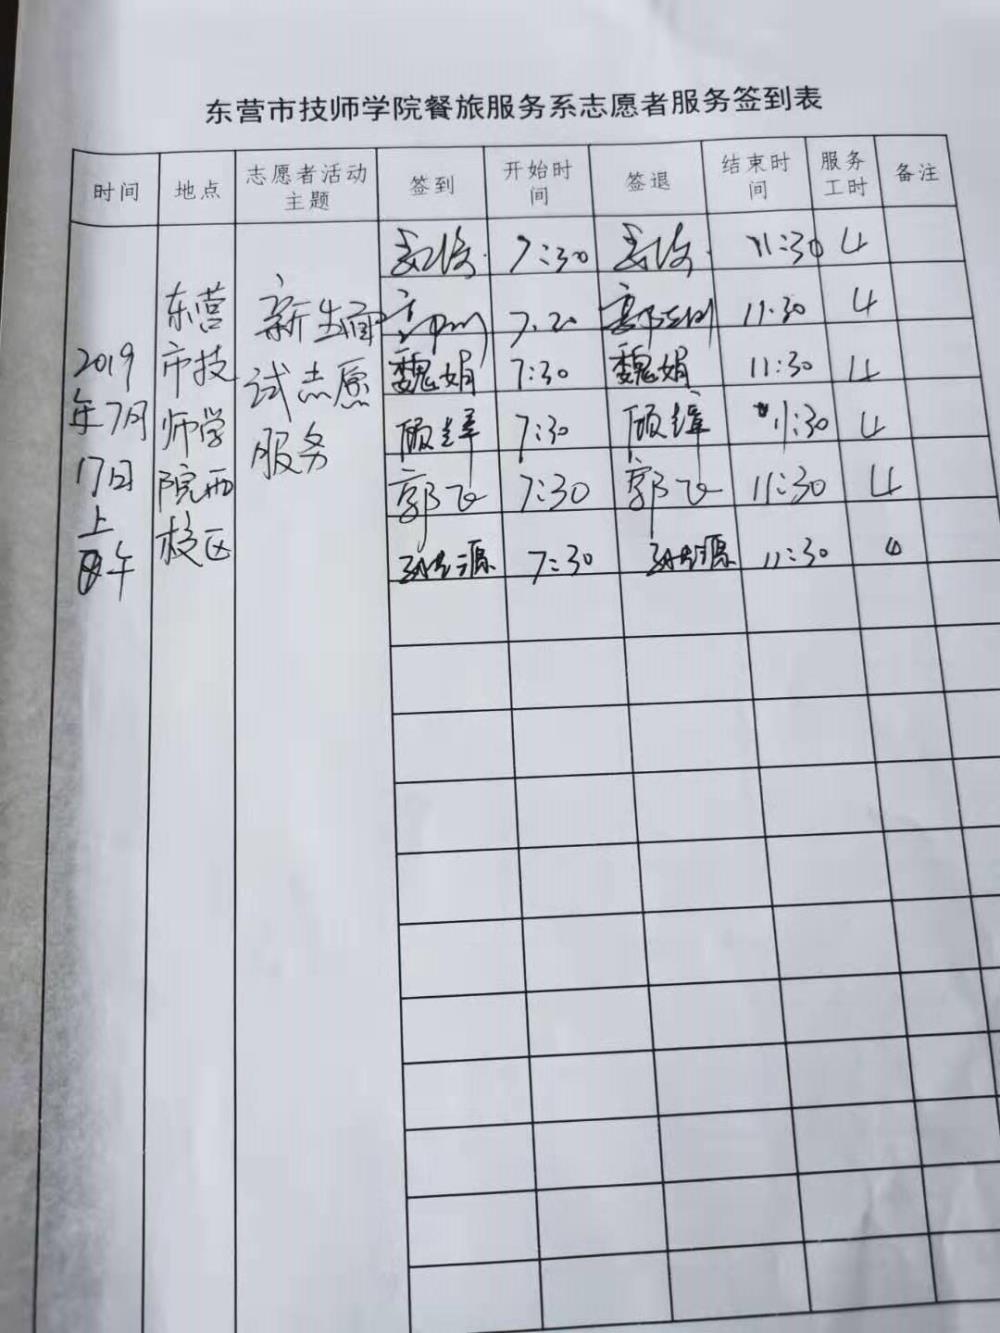 东营市技师学院餐旅服务系志愿者服务签到表
时间 地点 志愿者活动主题 签到 开始时间 签退 结束时间 服务工时 备注
2019
年7月
17日
上
午
东营
市技
师学
院西
校区
新生面
试志愿
服务
7:30 11:30 4
7:30 11:30 4
魏娟 7:30 魏娟 11:30 4
顾 7:30 顾 11:30 4
郭飞 7:30 郭飞 11:30 4
源 7:30 源 11:30 4